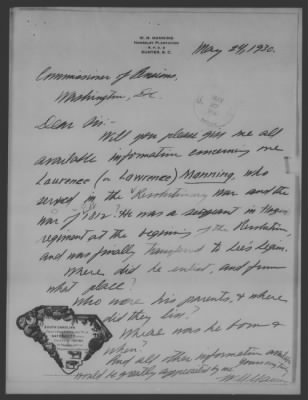 W. H. MANNING
HOMESLEY PLANTATION
R. F. D. 2
SUMTER, S. C.
May 24, 1930.
Commissioner of Pensions,
Washington, D.C.
Dear Sir:-
Will you please give me all
available information concerning one
Laurence (or Lawrence) Manning, who
served in the Revolutionary War and the
War of 1812? He was a sergeant in
regiment at the beginning of the Revolution,
and was finally transferred to Lee's Legion.
Where did he enlist, and from
what place?
Who were his parents, & where
did they live?
Where was he born &
when?
And all other information available
would be greatly appreciated by me.
Yours very truly,
SOUTH CAROLINA